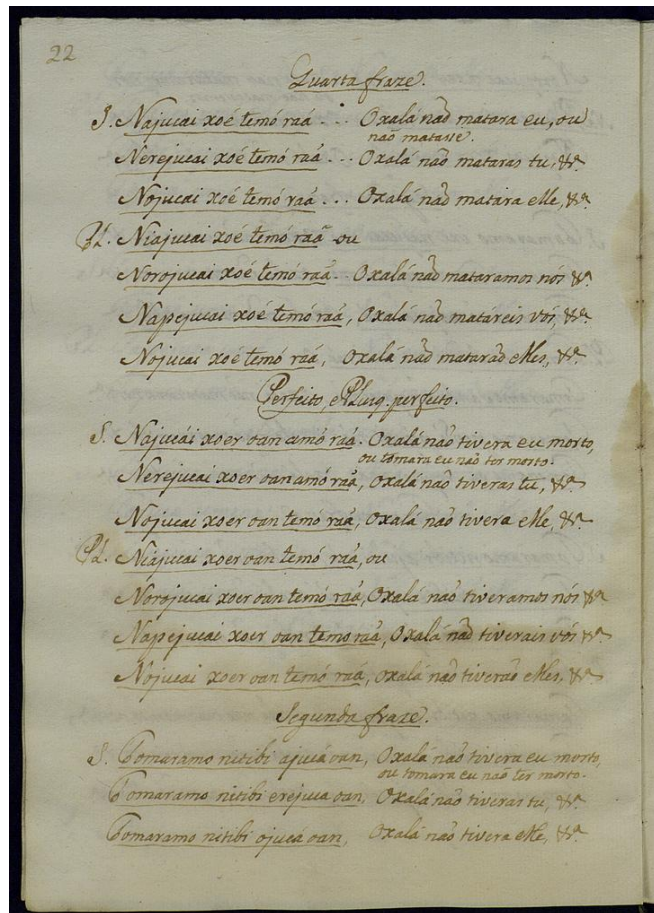 22
Quarta fraze.
S. Najucai xoé temó raá ... Oxalá naõ matara eu, ou
naõ matasse.
Nerejucai xoé temó raá ... Oxalá naõ mataras tu, &ª
Nojucai xoé temó raá ... Oxalá naõ matara elle, &ª
Pl. Niajucai xoé temó raá ou
Norojucai xoé temó raá .. Oxalá naõ mataramos nós &ª
Napejucai xoé temó raá, Oxalá naõ matáreis vós, &ª
Nojucai xoé temó raá, Oxalá naõ mataraõ elles, &ª
Perfeito, e Plusq. perfeito.
S. Najucái xoer oan amó raá. Oxalá naõ tivera eu morto,
ou tomara eu naõ ter morto.
Nerejucai xoer oan amó raá, Oxalá naõ tiveras tu, &ª
Nojucai xoer oan temó raá, Oxalá naõ tivera elle, &ª
Pl. Niajucai xoer oan temó raá, ou
Norojucai xoer oan temó raá, Oxalá naõ tiveramos nós &ª
Napejucai xoer oan temo raá, Oxalá naõ tiverais vós &ª
Nojucai xoer oan temó raá, Oxalá naõ tiveraõ elles, &ª
Segunda fraze.
S. Tomaramo nitibi ajucá oan, Oxalá naõ tivera eu morto,
ou tomara eu naõ ter morto.
Tomaramo nitibi erejuca oan, Oxalá naõ tiveras tu, &ª
Tomaramo nitibi ojucá oan, Oxalá naõ tivera elle, &ª